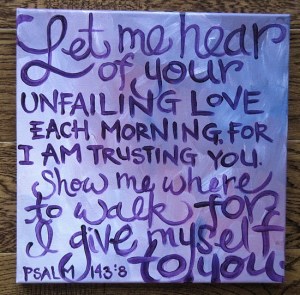 Let me hear
of your
UNFAILING LOVE
EACH MORNING, FOR
I AM TRUSTING YOU.
Show me where
to walk for
I give myself
PSALM 143:8 to you